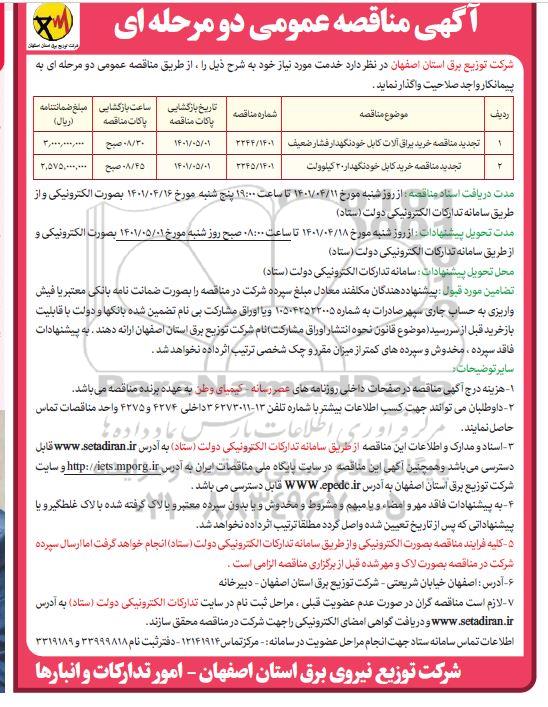 آگهی مناقصه عمومی دو مرحله ای
شرکت توزیع برق استان اصفهان
شرکت توزیع برق استان اصفهان در نظر دارد خدمت مورد نیاز خود به شرح ذیل را ، از طریق مناقصه عمومی دو مرحله ای به
پیمانکار واجد صلاحیت واگذار نماید .
ردیف موضوع مناقصه شماره مناقصه تاریخ بازگشایی پاکات مناقصه ساعت بازگشایی پاکات مناقصه مبلغ ضمانتنامه (ریال)
۱ تجدید مناقصه خرید یراق آلات کابل خودنگهدار فشار ضعیف ۲۲۴۴/۱۴۰۱ ۱۴۰۱/۰۵/۰۱ ۰۸/۳۰ صبح ۳,۰۰۰,۰۰۰,۰۰۰
۲ تجدید مناقصه خرید کابل خودنگهدار ۲۰ کیلوولت ۲۲۴۵/۱۴۰۱ ۱۴۰۱/۰۵/۰۱ ۰۸/۴۵ صبح ۲,۵۷۵,۰۰۰,۰۰۰
مدت دریافت اسناد مناقصه : از روز شنبه مورخ ۱۴۰۱/۰۴/۱۱ تا ساعت ۱۹:۰۰ پنج شنبه مورخ ۱۴۰۱/۰۴/۱۶ بصورت الکترونیکی و از
طریق سامانه تدارکات الکترونیکی دولت (ستاد)
مدت تحویل پیشنهادات : از روز شنبه مورخ ۱۴۰۱/۰۴/۱۸ تا ساعت ۰۸:۰۰ صبح روز شنبه مورخ ۱۴۰۱/۰۵/۰۱ بصورت الکترونیکی و
از طریق سامانه تدارکات الکترونیکی دولت (ستاد)
محل تحویل پیشنهادات : سامانه تدارکات الکترونیکی دولت (ستاد)
تضامین مورد قبول : پیشنهاددهندگان مکلفند معادل مبلغ سپرده شرکت در مناقصه را بصورت ضمانت نامه بانکی معتبر یا فیش
واریزی به حساب جاری سپهر صادرات به شماره ۰۱۰۵۰۴۲۵۲۲۰۰۵ ویا اوراق مشارکت بی نام تضمین شده بانکها و دولت با قابلیت
بازخرید قبل از سررسید(موضوع قانون نحوه انتشار اوراق مشارکت)نام شرکت توزیع برق استان اصفهان ارائه دهند . به پیشنهادات
فاقد سپرده ، مخدوش و سپرده های کمتر از میزان مقرر و چک شخصی ترتیب اثر داده نخواهد شد .
سایر توضیحات:
۱-هزینه درج آگهی مناقصه در صفحات داخلی روزنامه های عصر رسانه - کیمیای وطن به عهده برنده مناقصه می‌باشد.
۲-داوطلبان می توانند جهت کسب اطلاعات بیشتر با شماره تلفن ۱۳-۳۶۲۷۳۰۱۱ داخلی ۴۲۷۴ و ۴۲۷۵ واحد مناقصات تماس
حاصل نمایند.
۳-اسناد و مدارک و اطلاعات این مناقصه از طریق سامانه تدارکات الکترونیکی دولت (ستاد) به آدرس www.setadiran.ir قابل
دسترسی می باشد وهمچنین آگهی این مناقصه در سایت پایگاه ملی مناقصات ایران به آدرس http://iets.mporg.ir و سایت
شرکت توزیع برق استان اصفهان به آدرس WWW.epedc.ir قابل دسترسی می باشد .
۴-به پیشنهادات فاقد مهر و امضاء و یا مبهم و مشروط و مخدوش و یا بدون سپرده معتبر و یا لاک گرفته شده با لاک غلط‌گیر و یا
پیشنهاداتی که پس از تاریخ تعیین شده واصل گردد مطلقا ترتیب اثر داده نخواهد شد.
۵-کلیه فرایند مناقصه بصورت الکترونیکی و از طریق سامانه تدارکات الکترونیکی دولت (ستاد) انجام خواهد گرفت اما ارسال سپرده
شرکت در مناقصه بصورت لاک و مهر شده قبل از برگزاری مناقصه الزامی است .
۶-آدرس : اصفهان خیابان شریعتی - شرکت توزیع برق استان اصفهان - دبیرخانه
۷-لازم است مناقصه گران در صورت عدم عضویت قبلی ، مراحل ثبت نام در سایت تدارکات الکترونیکی دولت (ستاد) به آدرس
www.setadiran.ir و دریافت گواهی امضای الکترونیکی را جهت شرکت در مناقصه محقق سازند.
اطلاعات تماس سامانه ستاد جهت انجام مراحل عضویت در سامانه : - مرکز تماس ۱۲۱۴۱۹۱۴-دفتر ثبت نام ۳۳۹۹۹۸۱۸ و ۳۳۱۹۱۸۹
شرکت توزیع نیروی برق استان اصفهان - امور تدارکات و انبارها